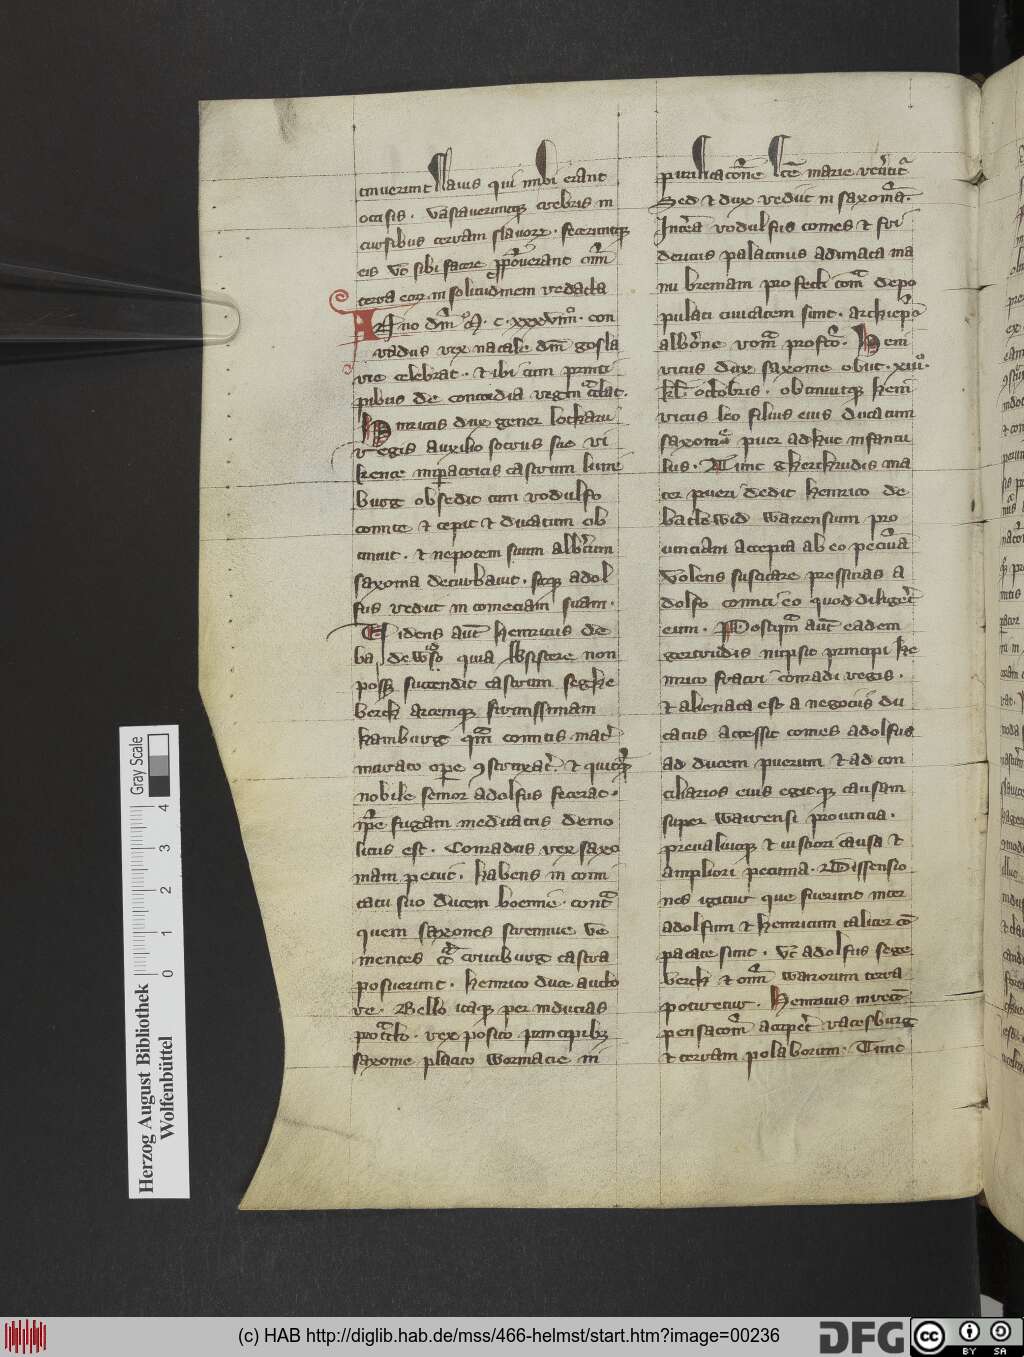 tinuerunt slauis qui in ibi erant
occisis. vastaueruntque crebris in
cursibus terram slauorum. feceruntque
eis vt sibi facere proposuerant omnem
terra eorum in solitudinem redacta
Anno dm̄ Mº. c. xxxviiiº. con
radus rex natale dm̄ gosla
rie celebrat. et ibi cum princi
pibus de concordia regni tractat.
Henricus dux gener lotharii
regis auxilio socrus sue ri
kence imperatricis castrum lune
burg obsedit cum rodulfo
comite et cepit et ducatum ob
tinuit. et nepotem suum albertum
saxonia deturbauit. sicque adol
fus rediit in cometiam suam.
Videns aut henricus de
ba quia subsistere non
posset succendit castrum seghe
berch arcemque firmissimam
hamburg quam comitis mater
murato opere construxerat. et quicquid
nobile senior adolfus fecerat.
ipse fugam meditatus demo
litus est. Conradus rex saxo
niam petiit. habens in comi
tatu suo ducem boemie. contra
quem saxones strennue ve
nientes circa cruciburg castra
posuerunt. henrico duce aucto
re. Bello itaque per inducias
protracto. rex posito principibus
saxonie placito wormacie in
purificatione sancte marie reuertitur
Sed et dux rediit in saxoniam.
Interea rodulfus comes et fri
dericus palatinus adunata ma
nu bremam profecti contra depo
pulati ciuitatem sunt. archiepo
albero romam profecto. Hen
ricus dux saxonie obiit. xiiiº.
kl octobris. obtinuitque henri
ricus leo filius eius ducatum
saxonie puer adhuc infantu
lus. Tunc gherthrudis ma
ter pueri dedit henrico de
badewid wairensium pro
uinciam accepta ab eo pecunia
Volens suscitare pressuras a
dolfo comiti eo quod diligeret
eum. Postquam aut eadem
gertrudis nupsit principi he
inrico fratri conradi regis.
et alienata est a negociis du
catus accessit comes adolfus
ad ducem puerum et ad con
ciliarios eius egitque causam
super wairensi prouincia.
preualuitque et iusciori causa et
ampliori pecunia. Dissensio
nes igitur que fuerunt inter
adolfum et henricum taliter com
pacate sunt. vt adolfus sege
berch et omnium wairorum terra
potiretur. Henricus in recom
pensacionem acciperet racesburg
et terram polaborum. Tunc
Gray Scale
0 1 2 3 4
Herzog August Bibliothek
Wolfenbüttel
(c) HAB http://diglib.hab.de/mss/466-helmst/start.htm?image=00236
DFG
cc
BY SA